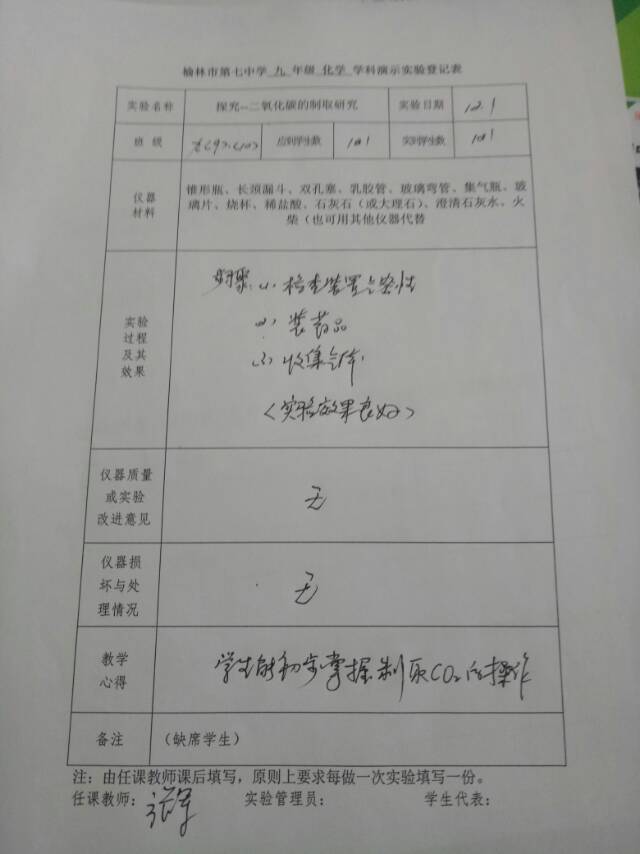 榆林市第七中学 九 年级 化学 学科演示实验登记表
实验名称 探究--二氧化碳的制取研究 实验日期 12.1
班 级 应到学生数 101 实到学生数 101
仪器
材料
锥形瓶、长颈漏斗、双孔塞、乳胶管、玻璃弯管、集气瓶、玻
璃片、烧杯、稀盐酸、石灰石（或大理石）、澄清石灰水、火
柴（也可用其他仪器代替
实验
过程
及其
效果
步骤: (1) 检查装置气密性
(2) 装药品
(3) 收集气体.
<实验效果良好>
仪器质量
或实验
改进意见
无
仪器损
坏与处
理情况
无
教学
心得
学生能初步掌握制取CO2的操作
备注 （缺席学生）
注：由任课教师课后填写，原则上要求每做一次实验填写一份。
任课教师： 实验管理员： 学生代表：